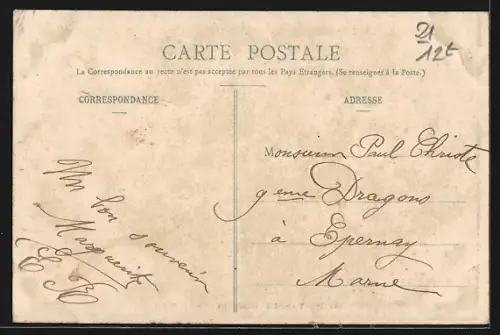 21
12t
CARTE POSTALE
La Correspondance au recto n'est pas acceptée par tous les Pays Etrangers. (Se renseigner à la Poste.)
CORRESPONDANCE
ADRESSE
Un bon souvenir
à Marguerite
Monsieur Paul Christe
9eme Dragons
à Epernay
Marne